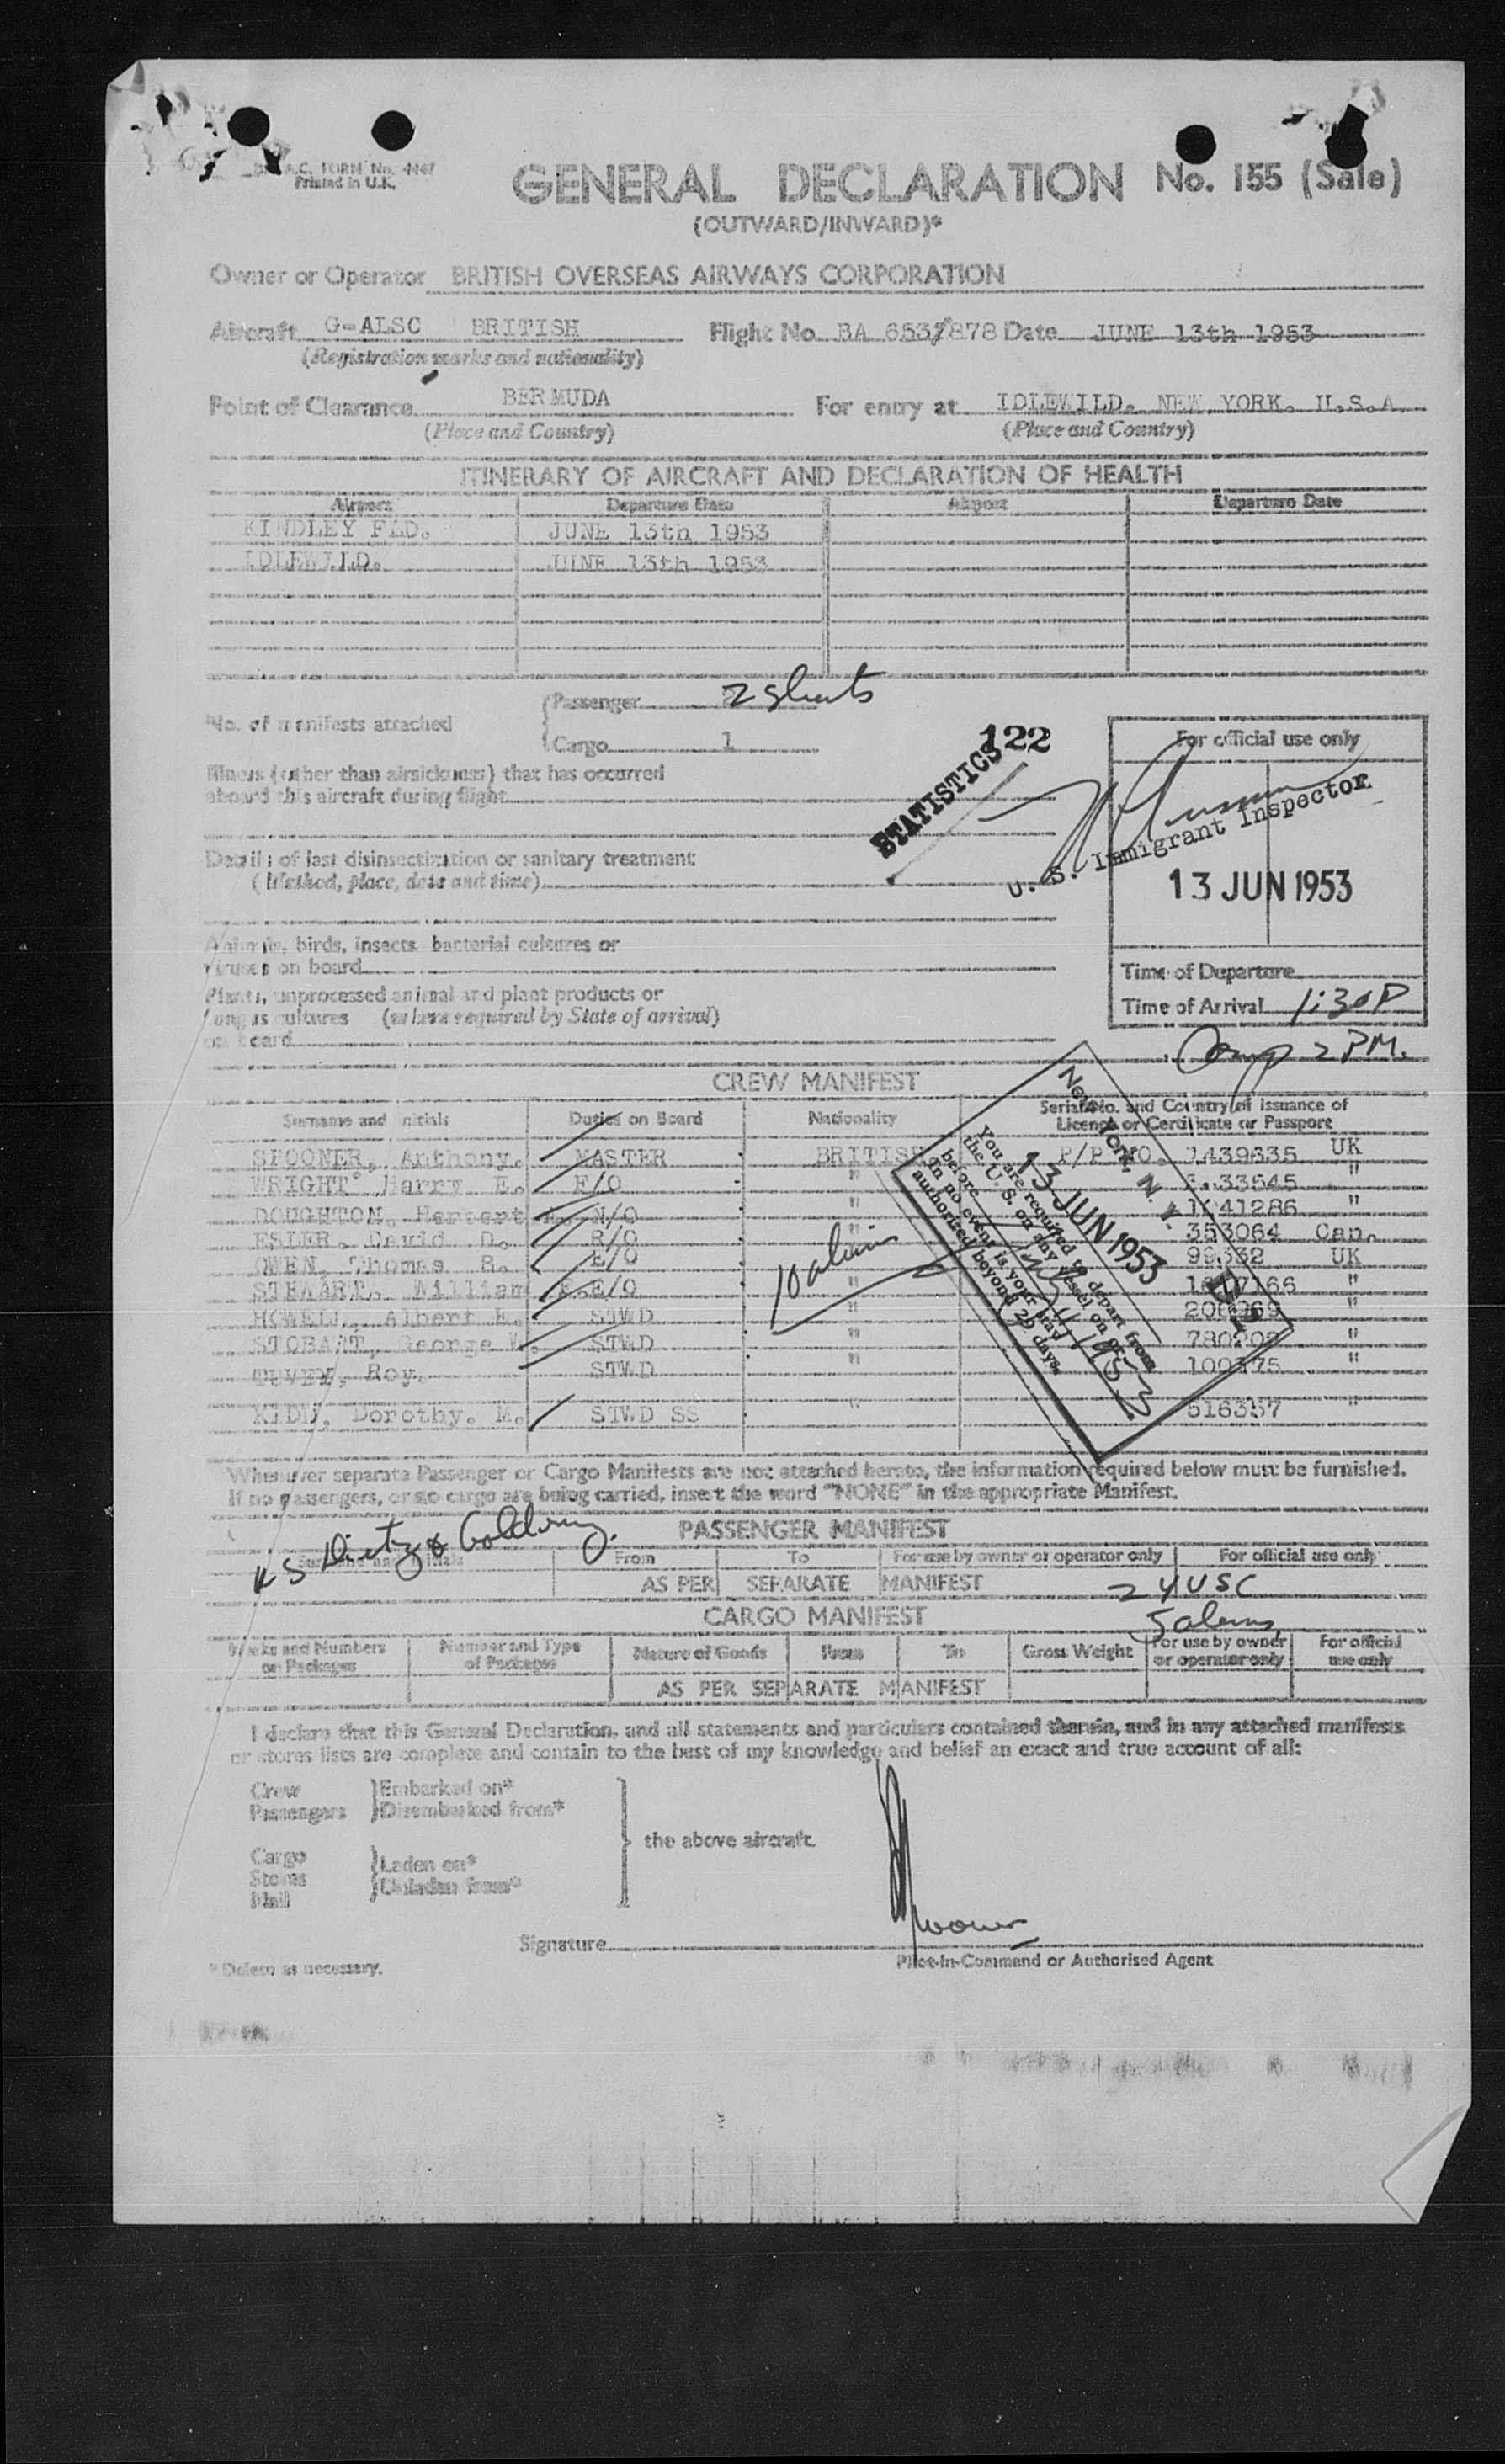 FORM No. 4447
Printed in U.K.
GENERAL DECLARATION No. 155 (Sale)
(OUTWARD/INWARD)*
Owner or Operator BRITISH OVERSEAS AIRWAYS CORPORATION
Aircraft G-ALSC BRITISH Flight No. BA 653/878 Date JUNE 13th 1953
(Registration marks and nationality)
Point of Clearance BERMUDA For entry at IDLEWILD. NEW YORK. U.S.A.
(Place and Country) (Place and Country)
ITINERARY OF AIRCRAFT AND DECLARATION OF HEALTH
Airport Departure Date Airport Departure Date
KINDLEY FLD. JUNE 13th 1953
IDLEWILD. JUNE 13th 1953
No. of manifests attached
Passenger 2 sheets
Cargo 1
122
STATISTICS
For official use only
Illness (other than airsickness) that has occurred
aboard this aircraft during flight
U. S. Immigrant Inspector
13 JUN 1953
Details of last disinsectization or sanitary treatment:
(Method, place, date and time)
Animals, birds, insects, bacterial cultures or
viruses on board
Time of Departure
Plants, unprocessed animal and plant products or
fungus cultures (where required by State of arrival)
on board
Time of Arrival 1:30P
Comp 2 PM.
CREW MANIFEST
Surname and Initials Duties on Board Nationality Serial No. and Country of Issuance of
Licence or Certificate or Passport
SPOONER, Anthony. MASTER BRITISH P/P NO. 1439635 UK
WRIGHT Harry E. F/O " 33545 "
DOUGHTON, Herbert N/O " 1641286 "
ESLER. David D. R/O " 353064 Can.
OWEN, Thomas R. E/O 99332 UK
STEWART. William E/O " "
HOWELL, Albert E. STWD " "
STOBART, George W. STWD " "
TUVEY, Roy. STWD " 100375 "
KIDD, Dorothy. M. STWD SS " 516357 "
10 aliens
New York, N. Y.
13 JUN 1953
D-2
You are required to depart from
the U. S. on any vessel on or
before
In no event is your stay
authorized beyond 29 days.
Whenever separate Passenger or Cargo Manifests are not attached hereto, the information required below must be furnished.
If no passengers, or no cargo are being carried, insert the word "NONE" in the appropriate Manifest.
PASSENGER MANIFEST
Surname and Initials From To For use by owner or operator only For official use only
AS PER SEPARATE MANIFEST 24 USC
5 aliens
CARGO MANIFEST
Marks and Numbers
on Packages Number and Type
of Packages Nature of Goods From To Gross Weight For use by owner
or operator only For official
use only
AS PER SEPARATE MANIFEST
I declare that this General Declaration, and all statements and particulars contained therein, and in any attached manifests
or stores lists are complete and contain to the best of my knowledge and belief an exact and true account of all:
Crew
Passengers
Embarked on*
Disembarked from*
Cargo
Stores
Mail
Laden on*
Unladen from*
the above aircraft.
Signature Spooner
Pilot-in-Command or Authorised Agent
* Delete as necessary.